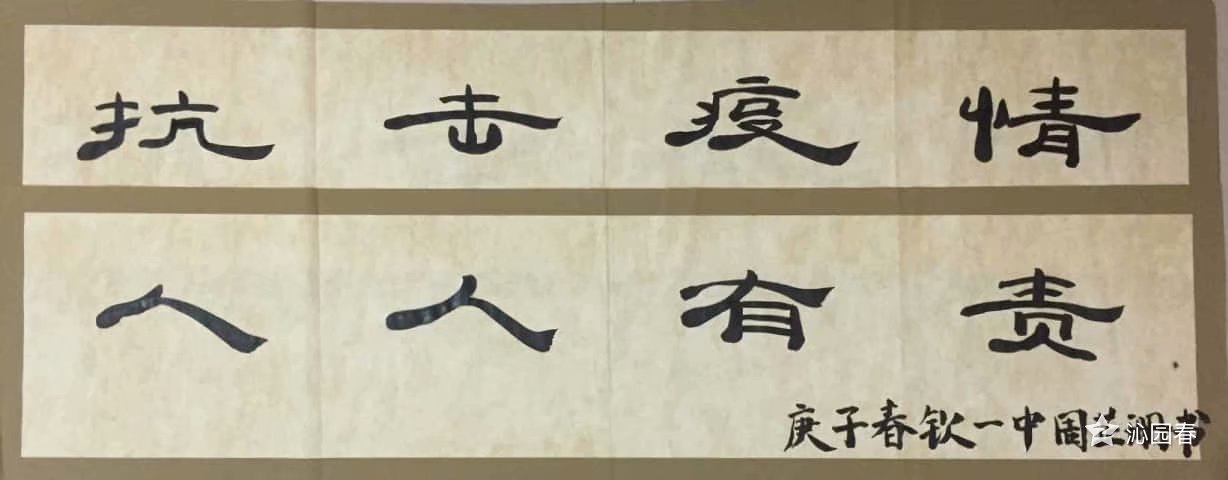 抗击疫情
人人有责
庚子春钦一中周 书
沁园春